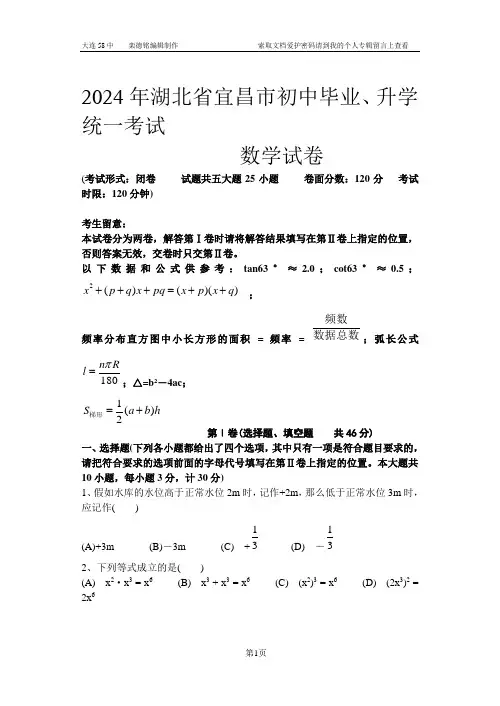 大连 58 中 栾德铭编辑制作 索取文档爱护密码请到我的个人专辑留言上查看
2024 年湖北省宜昌市初中毕业、升学
统一考试
数学试卷
(考试形式：闭卷 试题共五大题 25 小题 卷面分数：120 分 考试
时限：120 分钟)
考生留意：
本试卷分为两卷，解答第Ⅰ卷时请将解答结果填写在第Ⅱ卷上指定的位置，
否则答案无效，交卷时只交第Ⅱ卷。
以下数据和公式供参考：tan63°≈2.0；cot63°≈0.5；
x²+(p+q)x+pq=(x+p)(x+q) ；
频率分布直方图中小长方形的面积 = 频率 = 频数/数据总数；弧长公式
l=nπR/180；△=b²－4ac；
S梯形=1/2(a+b)h
第Ⅰ卷(选择题、填空题 共 46 分)
一、选择题(下列各小题都给出了四个选项，其中只有一项是符合题目要求的，
请把符合要求的选项前面的字母代号填写在第Ⅱ卷上指定的位置。本大题共
10 小题，每小题 3 分，计 30 分)
1、假如水库的水位高于正常水位 2m 时，记作+2m，那么低于正常水位 3m 时，
应记作( )
(A)+3m (B)－3m (C) +1/3 (D) －1/3
2、下列等式成立的是( )
(A) x²·x³ = x⁶ (B) x³ + x³ = x⁶ (C) (x²)³ = x⁶ (D) (2x³)² =
2x⁶
第1页